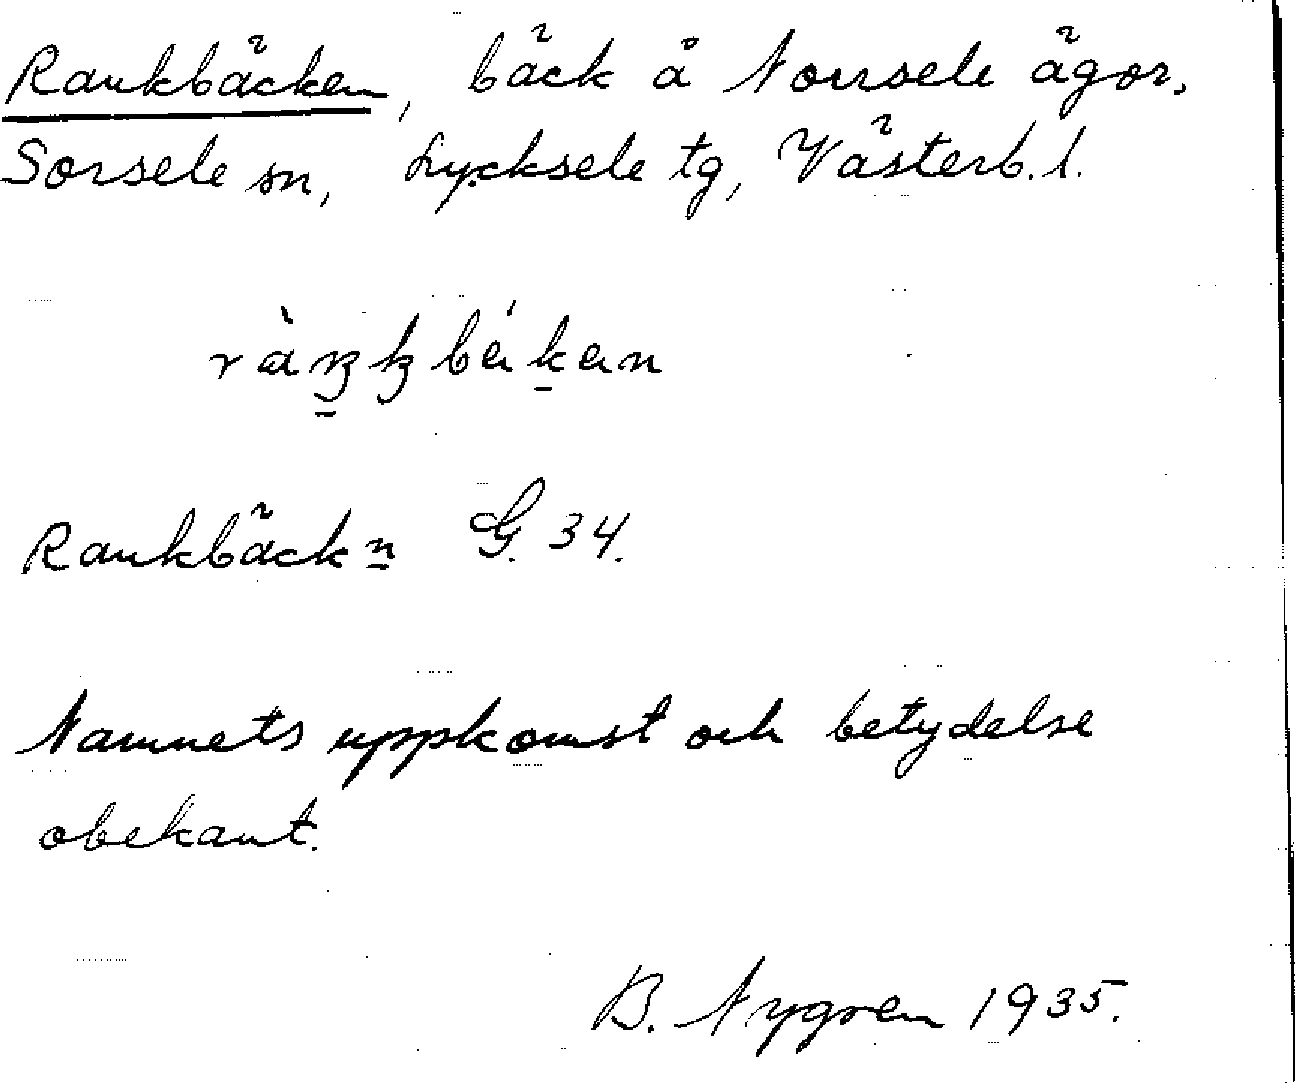 Rankbäcken, bäck å Norrsele ägor,
Sorsele sn, Lycksele tg, Västerb. l.
Rankbäckn G. 34.
Namnets uppkomst och betydelse
obekant.
B. Nygren 1935.